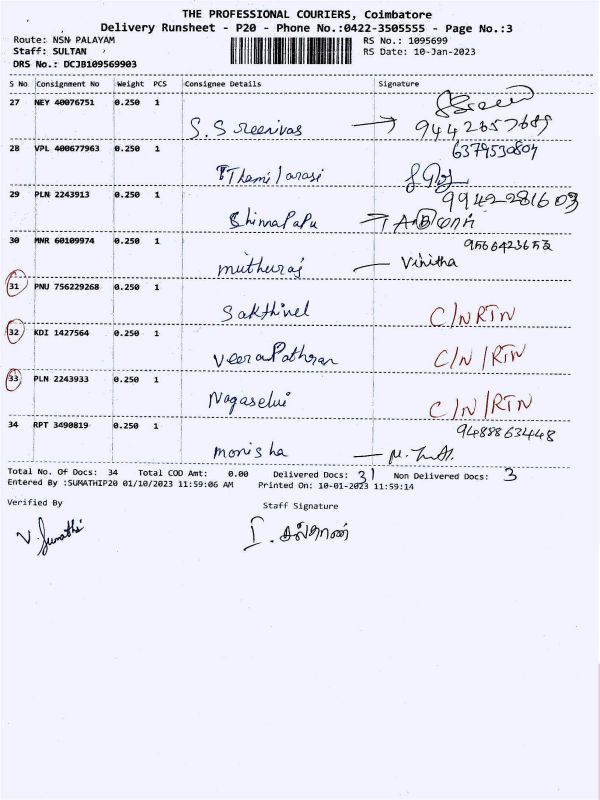 THE PROFESSIONAL COURIERS, Coimbatore
Delivery Runsheet - P20 - Phone No.:0422-3505555 - Page No.:3
Route: NSN PALAYAM RS No.: 1095699
Staff: SULTAN RS Date: 10-Jan-2023
DRS No.: DCJB109569903
S No Consignment No Weight PCS Consignee Details Signature
27 NEY 40076751 0.250 1
S.Sreenivas 9442657689
28 VPL 400677963 0.250 1 6379530804
Thamilarasi
29 PLN 2243913 0.250 1 9942281603
ChinnaPapu
30 MNR 60109974 0.250 1 9566423652
muthuraj — Vinitha
31 PNU 756229268 0.250 1
Sakthivel C/NRTN
32 KDI 1427564 0.250 1
VeeraPathiran C/N/RTN
33 PLN 2243933 0.250 1
Nagaselvi C/N/RTN
34 RPT 3490819 0.250 1 9488863448
monisha —
Total No. Of Docs: 34 Total COD Amt: 0.00 Delivered Docs: 31 Non Delivered Docs: 3
Entered By :SUMATHIP20 01/10/2023 11:59:06 AM Printed On: 10-01-2023 11:59:14
Verified By Staff Signature
V. Sumathi I. சுல்தான்